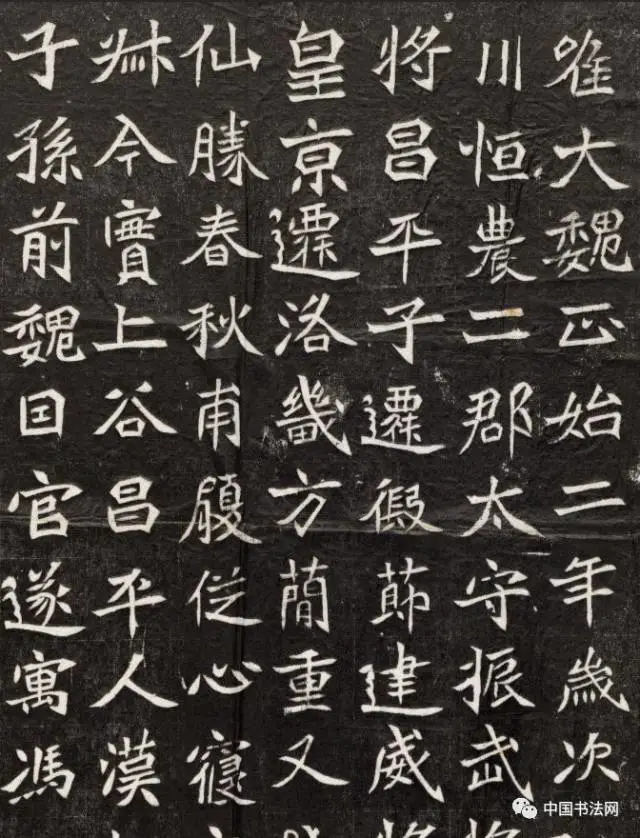 唯大魏正始二年歲次
川恒農二郡太守振武
將昌平子遷假節建威
皇京遷洛畿方簡重又
仙勝春秋甫履從心寢
今實上谷昌平人漢
子孫前魏囙官遂寓馮
中国书法网